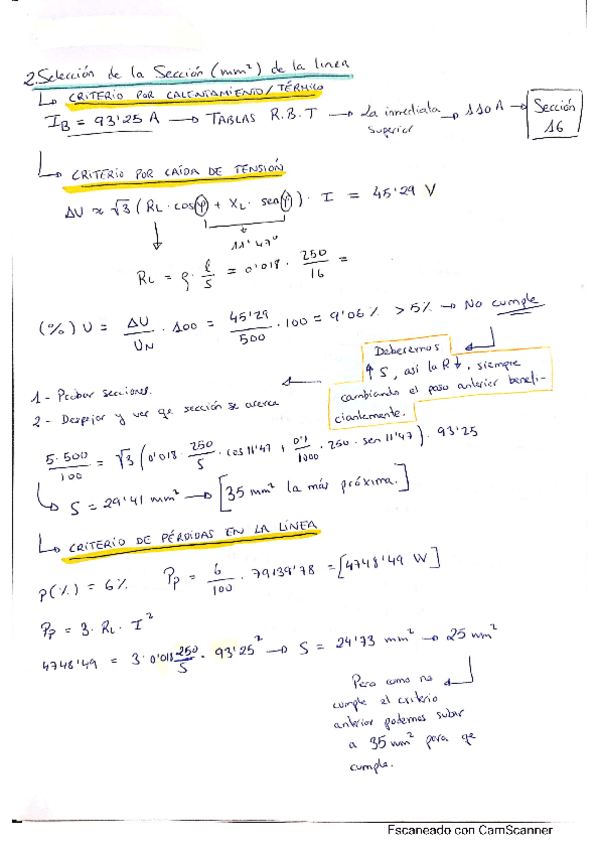 2. Selección de la Sección (mm²) de la línea
↳ CRITERIO POR CALENTAMIENTO/TÉRMICO
I_B = 93'25 A → TABLAS R.B.T → La inmediata superior → 110 A → Sección 16
↳ CRITERIO POR CAÍDA DE TENSIÓN
ΔU ≈ √3 (R_L · cos φ + X_L · sen φ) · I = 45'29 V
11'47º
R_L = ρ · l/S = 0'018 · 250/16 =
(%) U = ΔU/U_N · 100 = 45'29/500 · 100 = 9'06% > 5% → No cumple
Deberemos
↑ S, así la R↓, siempre
cambiando el paso anterior benefi-
ciantemente.
1 - Probar secciones.
2 - Despejar y ver que sección se acerca
5·500/100 = √3 (0'018 · 250/S · cos 11'47 + 0'1/1000 · 250 · sen 11'47) · 93'25
↳ S = 29'41 mm² → [35 mm² la más próxima.]
↳ CRITERIO DE PÉRDIDAS EN LA LÍNEA
p(%) = 6% P_p = 6/100 · 79139'78 = [4748'49 W]
P_p = 3 · R_L · I²
4748'49 = 3 · 0'018 250/S · 93'25² → S = 24'73 mm² → 25 mm²
Pero como no
cumple el criterio
anterior podemos subir
a 35 mm² para qe
cumple.
Escaneado con CamScanner